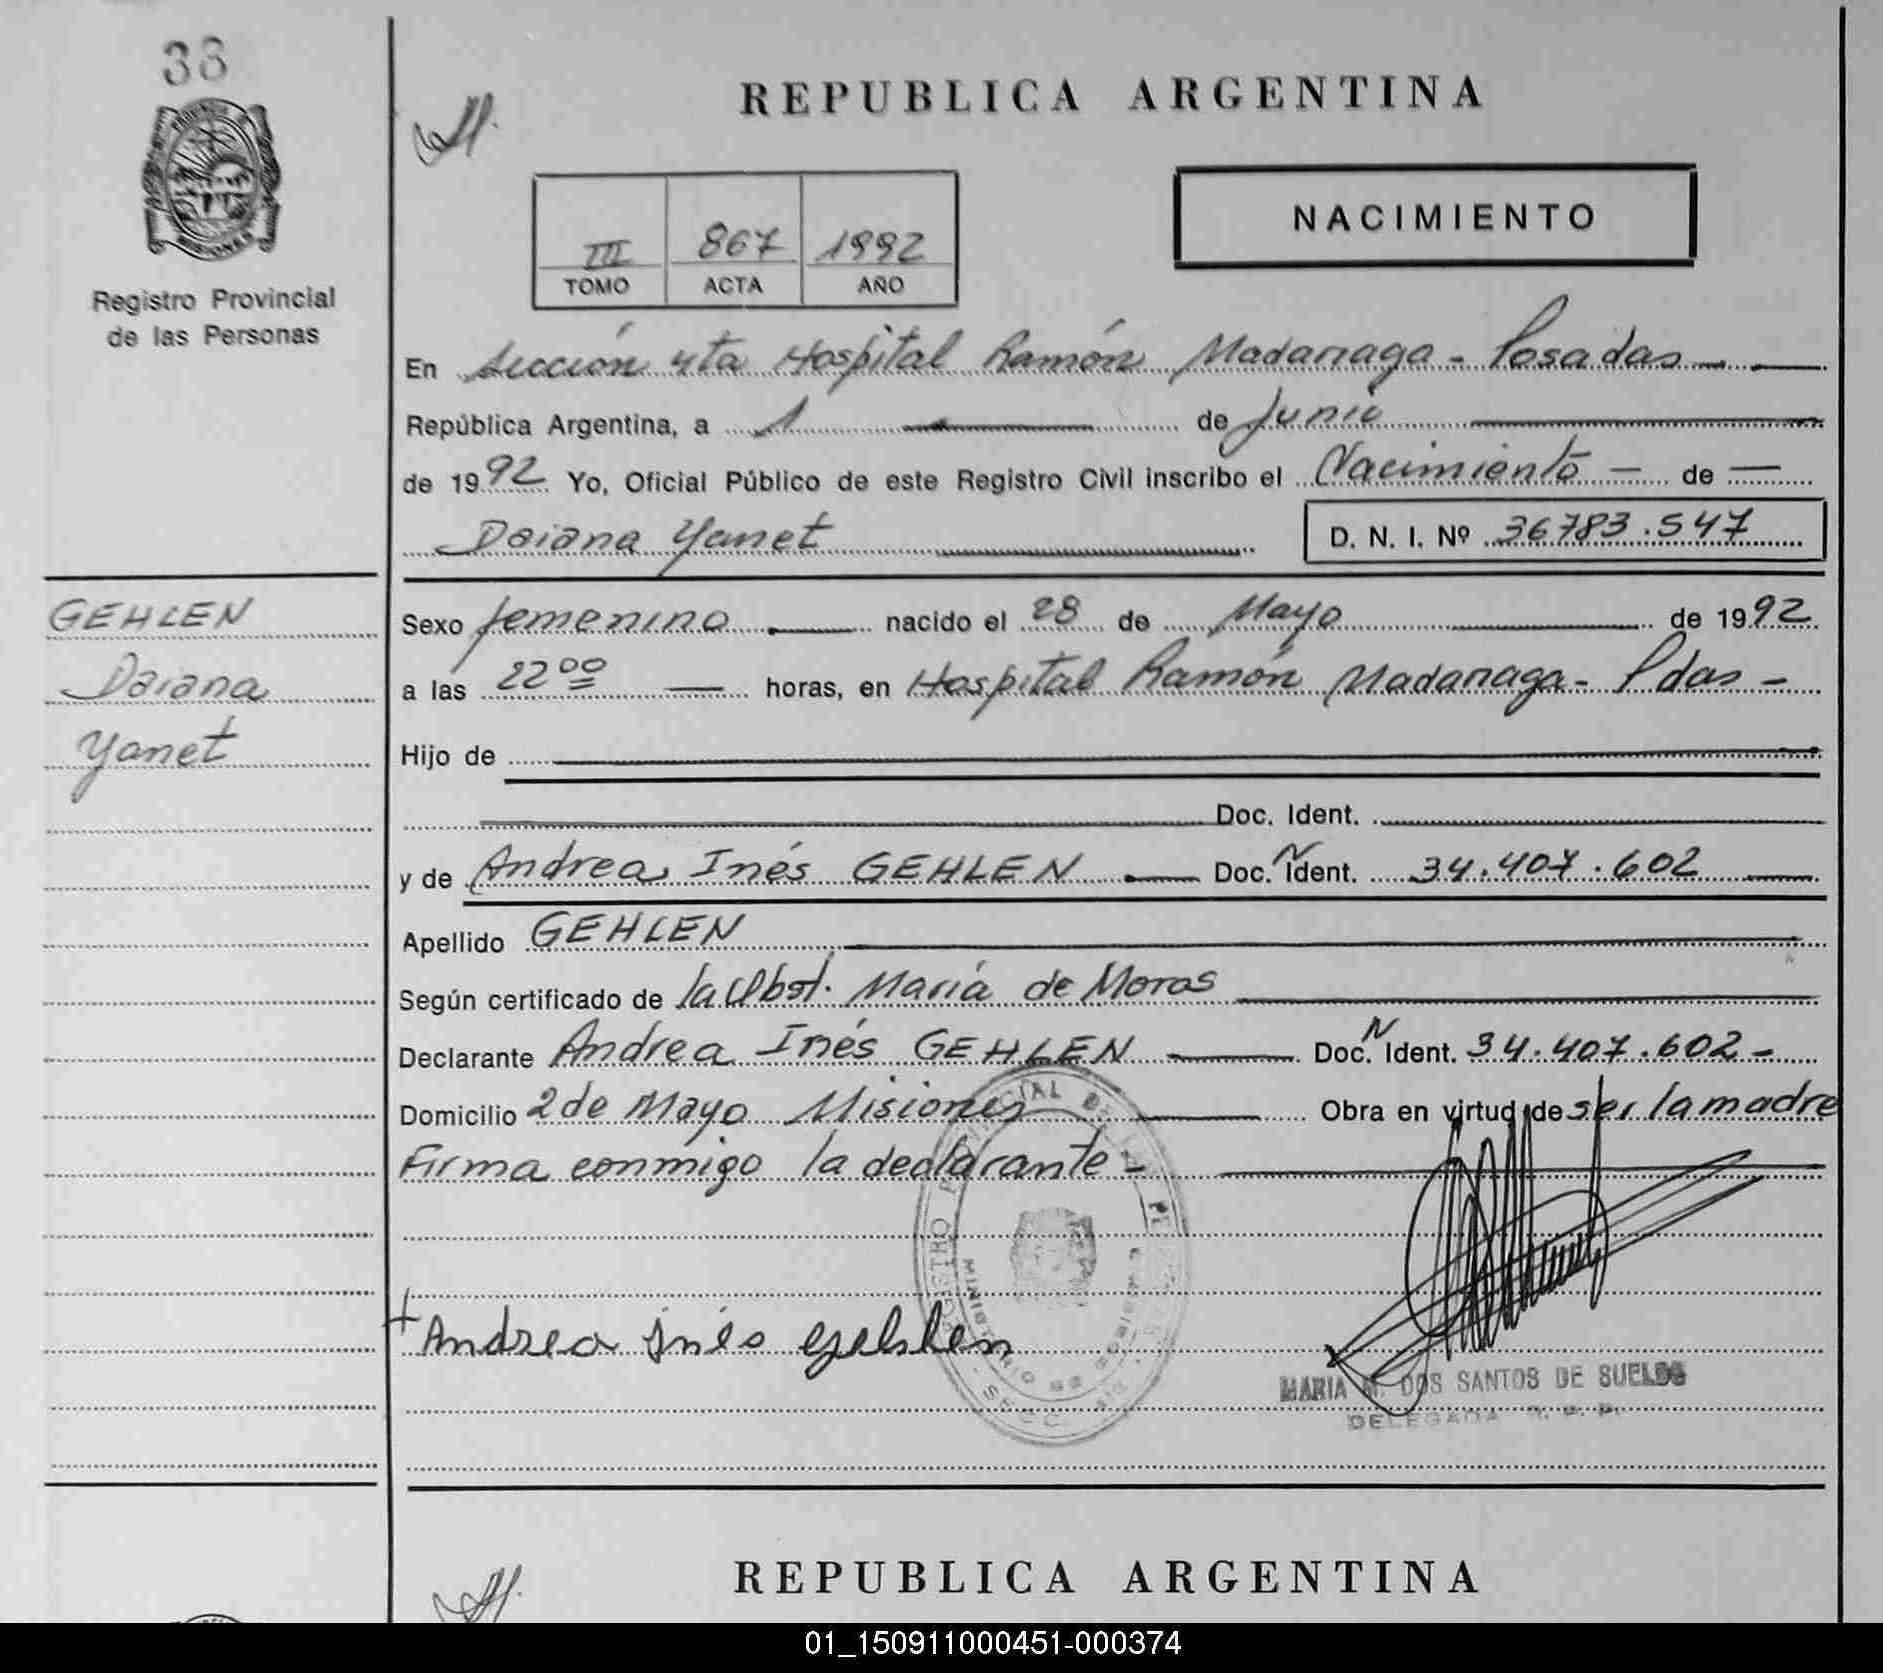 38
REPUBLICA ARGENTINA
NACIMIENTO
III 867 1992
TOMO ACTA AÑO
Registro Provincial
de las Personas
En Sección 4ta Hospital Ramón Madariaga - Posadas
República Argentina, a 1 de Junio
de 1992 Yo, Oficial Público de este Registro Civil inscribo el Nacimiento de
Daiana Yanet D. N. I. Nº 36783.547
GEHLEN
Daiana
Yanet
Sexo femenino nacido el 28 de Mayo de 1992
a las 22 00 horas, en Hospital Ramón Madariaga - Pdas -
Hijo de
Doc. Ident.
y de Andrea Inés GEHLEN Doc. N Ident. 34.407.602
Apellido GEHLEN
Según certificado de la Obst. María de Moras
Declarante Andrea Inés GEHLEN Doc. N Ident. 34.407.602 -
Domicilio 2 de Mayo Misiones Obra en virtud de ser la madre
Firma conmigo la declarante -
Andrea Inés Gehlen
MARIA M. DOS SANTOS DE SUELDO
DELEGADA R. P. P.
REPUBLICA ARGENTINA
01_150911000451-000374